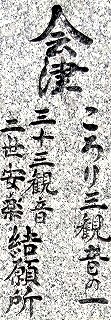 会津
ころり三観音の一
三十三観音
二世安楽結願所